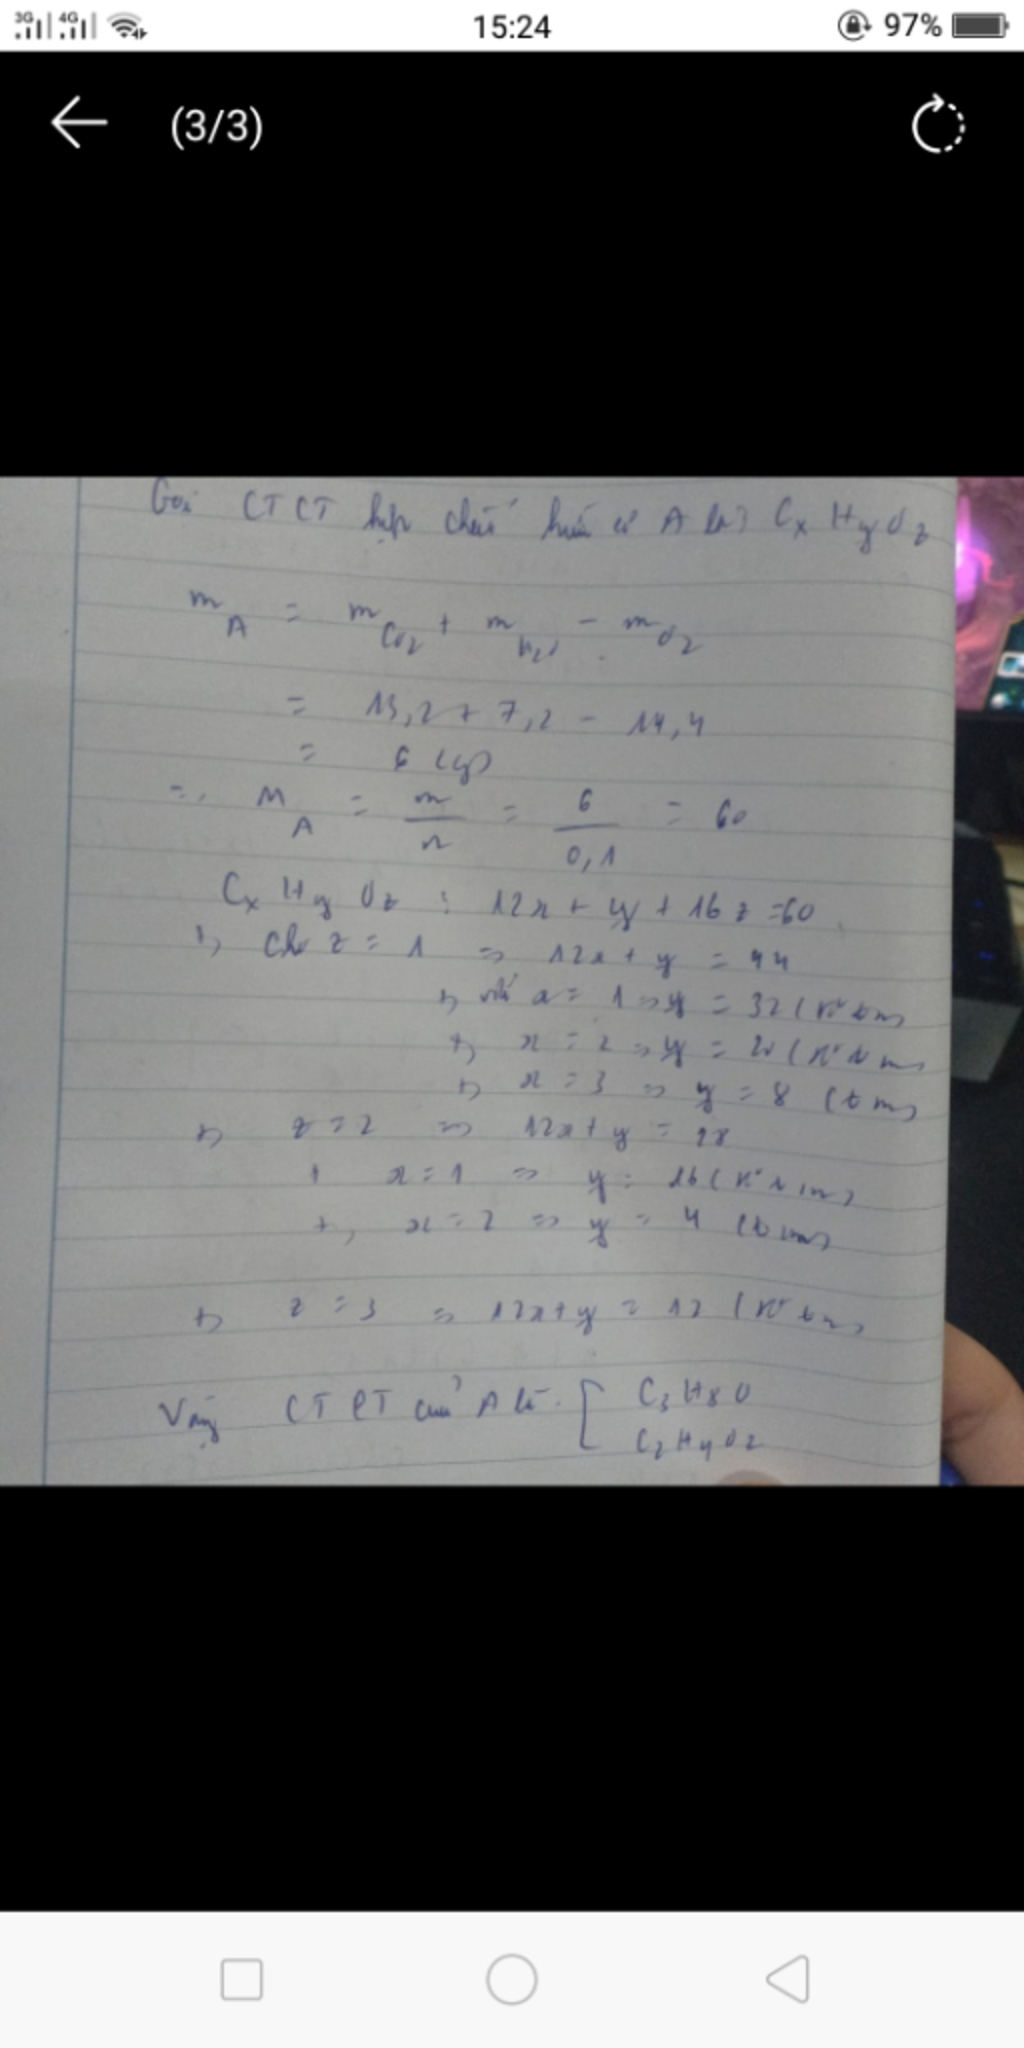 3G 4G 15:24 97%
(3/3)
Gọi CTCT hợp chất hữu cơ A là: CxHyOz
mA = mCO2 + mH2O - mO2
= 13,2 + 7,2 - 14,4
= 6 (g)
=> MA = m/n = 6/0,1 = 60
CxHyOz : 12x + y + 16z = 60
+, Cho z = 1 => 12x + y = 44
+, với x = 1 => y = 32 (ko tm)
+, x = 2 => y = 20 (ko tm)
+, x = 3 => y = 8 (tm)
+, z = 2 => 12x + y = 28
+ x = 1 => y = 16 (ko tm)
+, x = 2 => y = 4 (tm)
+, z = 3 => 12x + y = 12 (ko tm)
Vậy CTPT của A là: [ C3H8O
C2H4O2